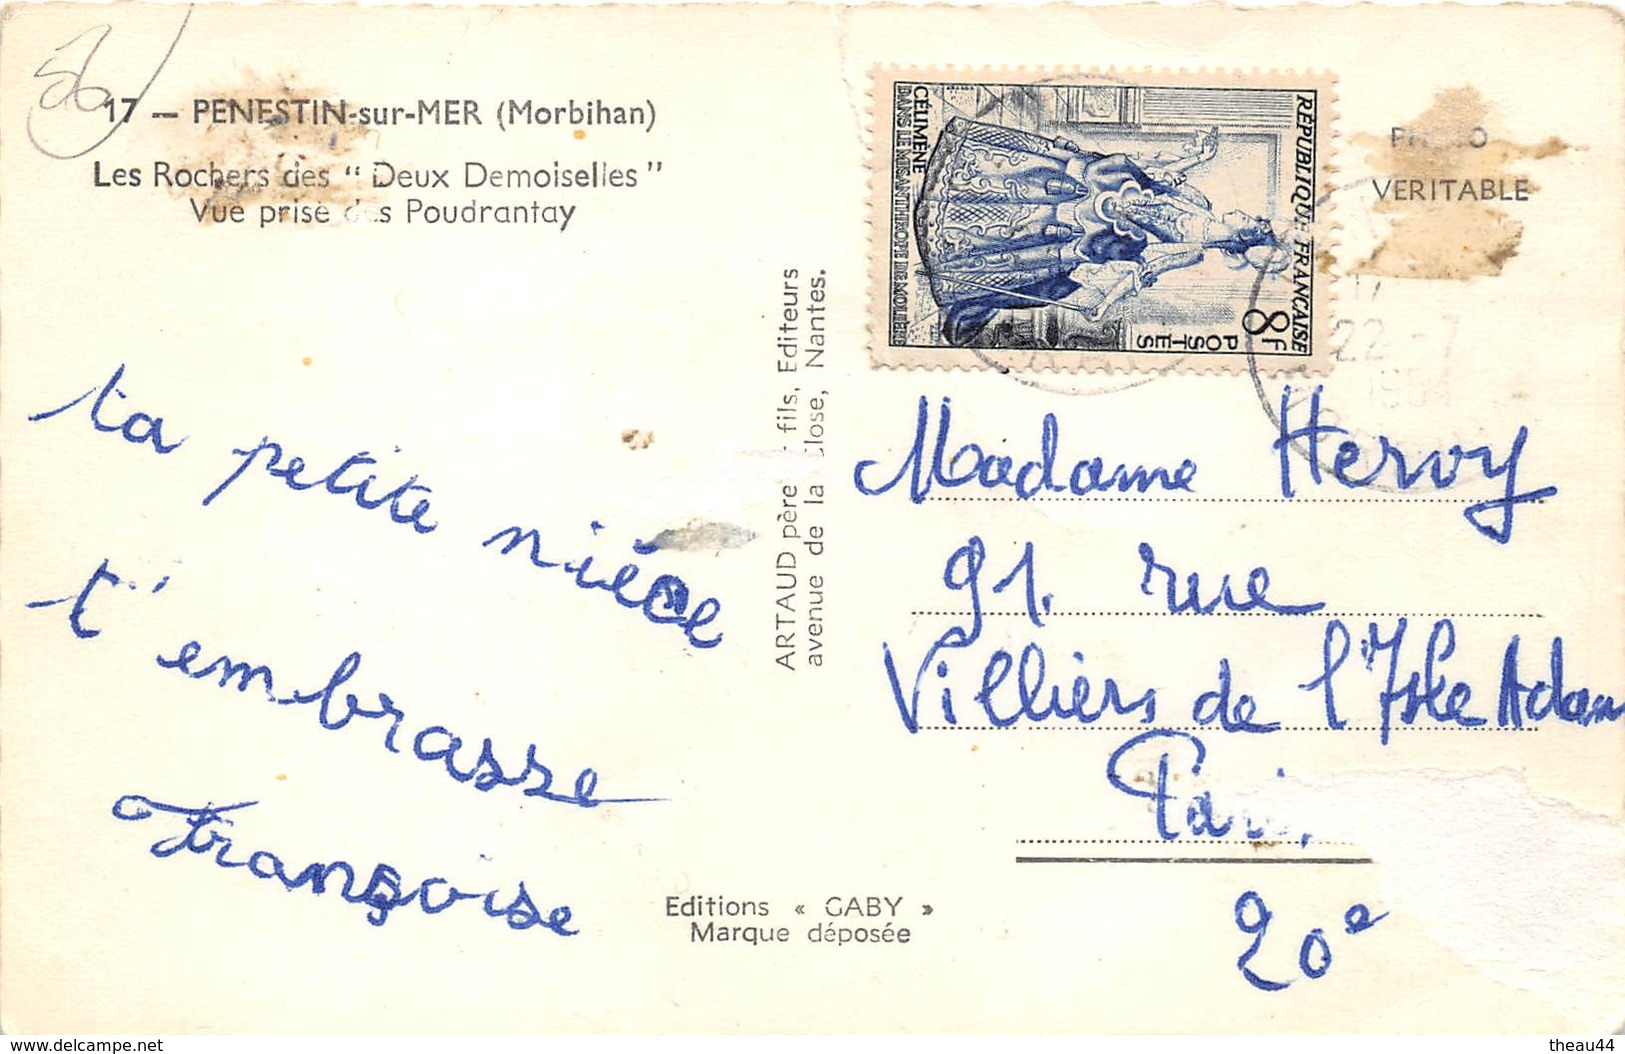 56
17 — PENESTIN-sur-MER (Morbihan)
Les Rochers des " Deux Demoiselles "
Vue prise des Poudrantay
ta petite nièce
t'embrasse
Françoise
ARTAUD père fils, Editeurs
avenue de la Close, Nantes.
Editions « GABY »
Marque déposée
RÉPUBLIQUE FRANÇAISE
8F
POSTES
CÉLIMÈNE
DANS LE MISANTHROPE DE MOLIÈRE
PHOTO
VERITABLE
22 -7
1954
Madame Hervy
91. rue
Villiers de l'Isle Adam
Paris
20e
www.delcampe.net
theau44